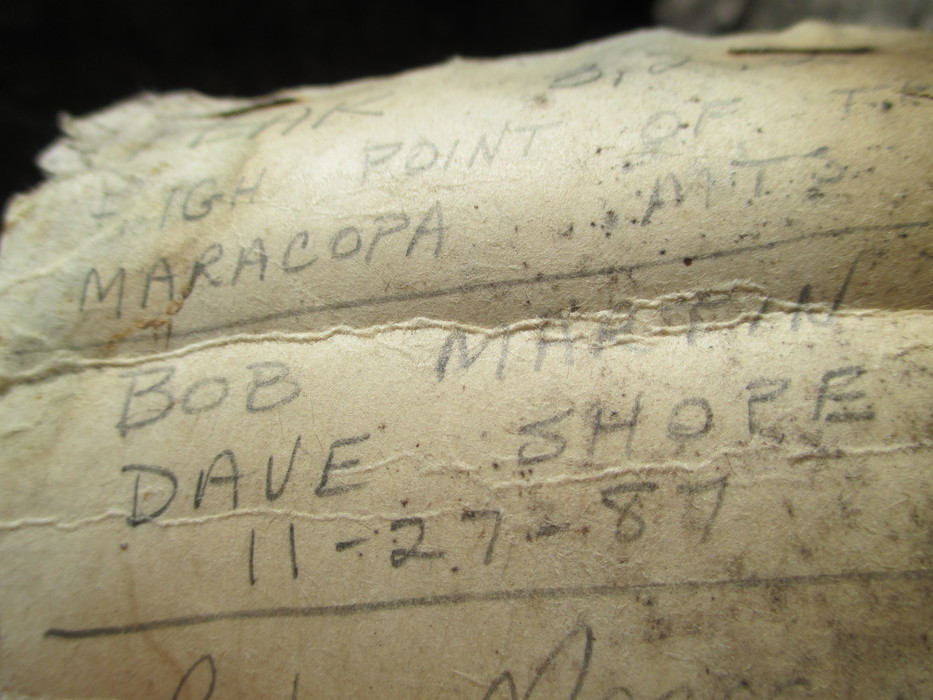 HIGH POINT OF THE
MARACOPA MTS
BOB MARTIN
DAVE SHOPE
11-27-87